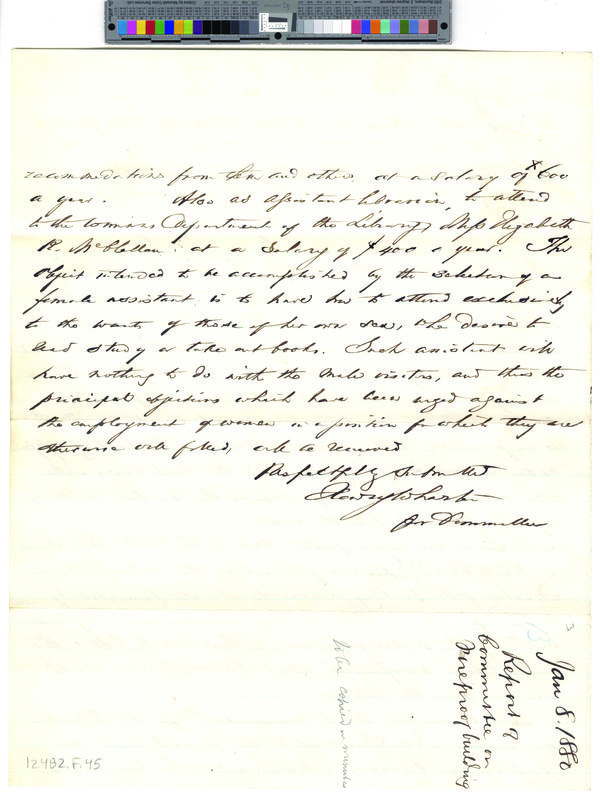 recommendations from him and others, at a salary of $600
a year. Also as assistant librarian, to attend
to the womans Department of the Library, Miss Elizabeth
R. McClellan: at a Salary of $400 a year. The
object intended to be accomplished by the selection of a
female assistant is to have her to attend exclusively
to the wants of those of her own sex, who desire to
read study or take out books. Such assistant will
have nothing to do with the male visitors, and thus the
principal objections which have been urged against
the employment of women in a position for which they are
otherwise well fitted, will be removed
Respectfully Submitted
Henry Wharton
for Committee
3
Jan 8. 1880
Report of
Committee on
Fireproof building
to be copied in minutes
12482.F.45